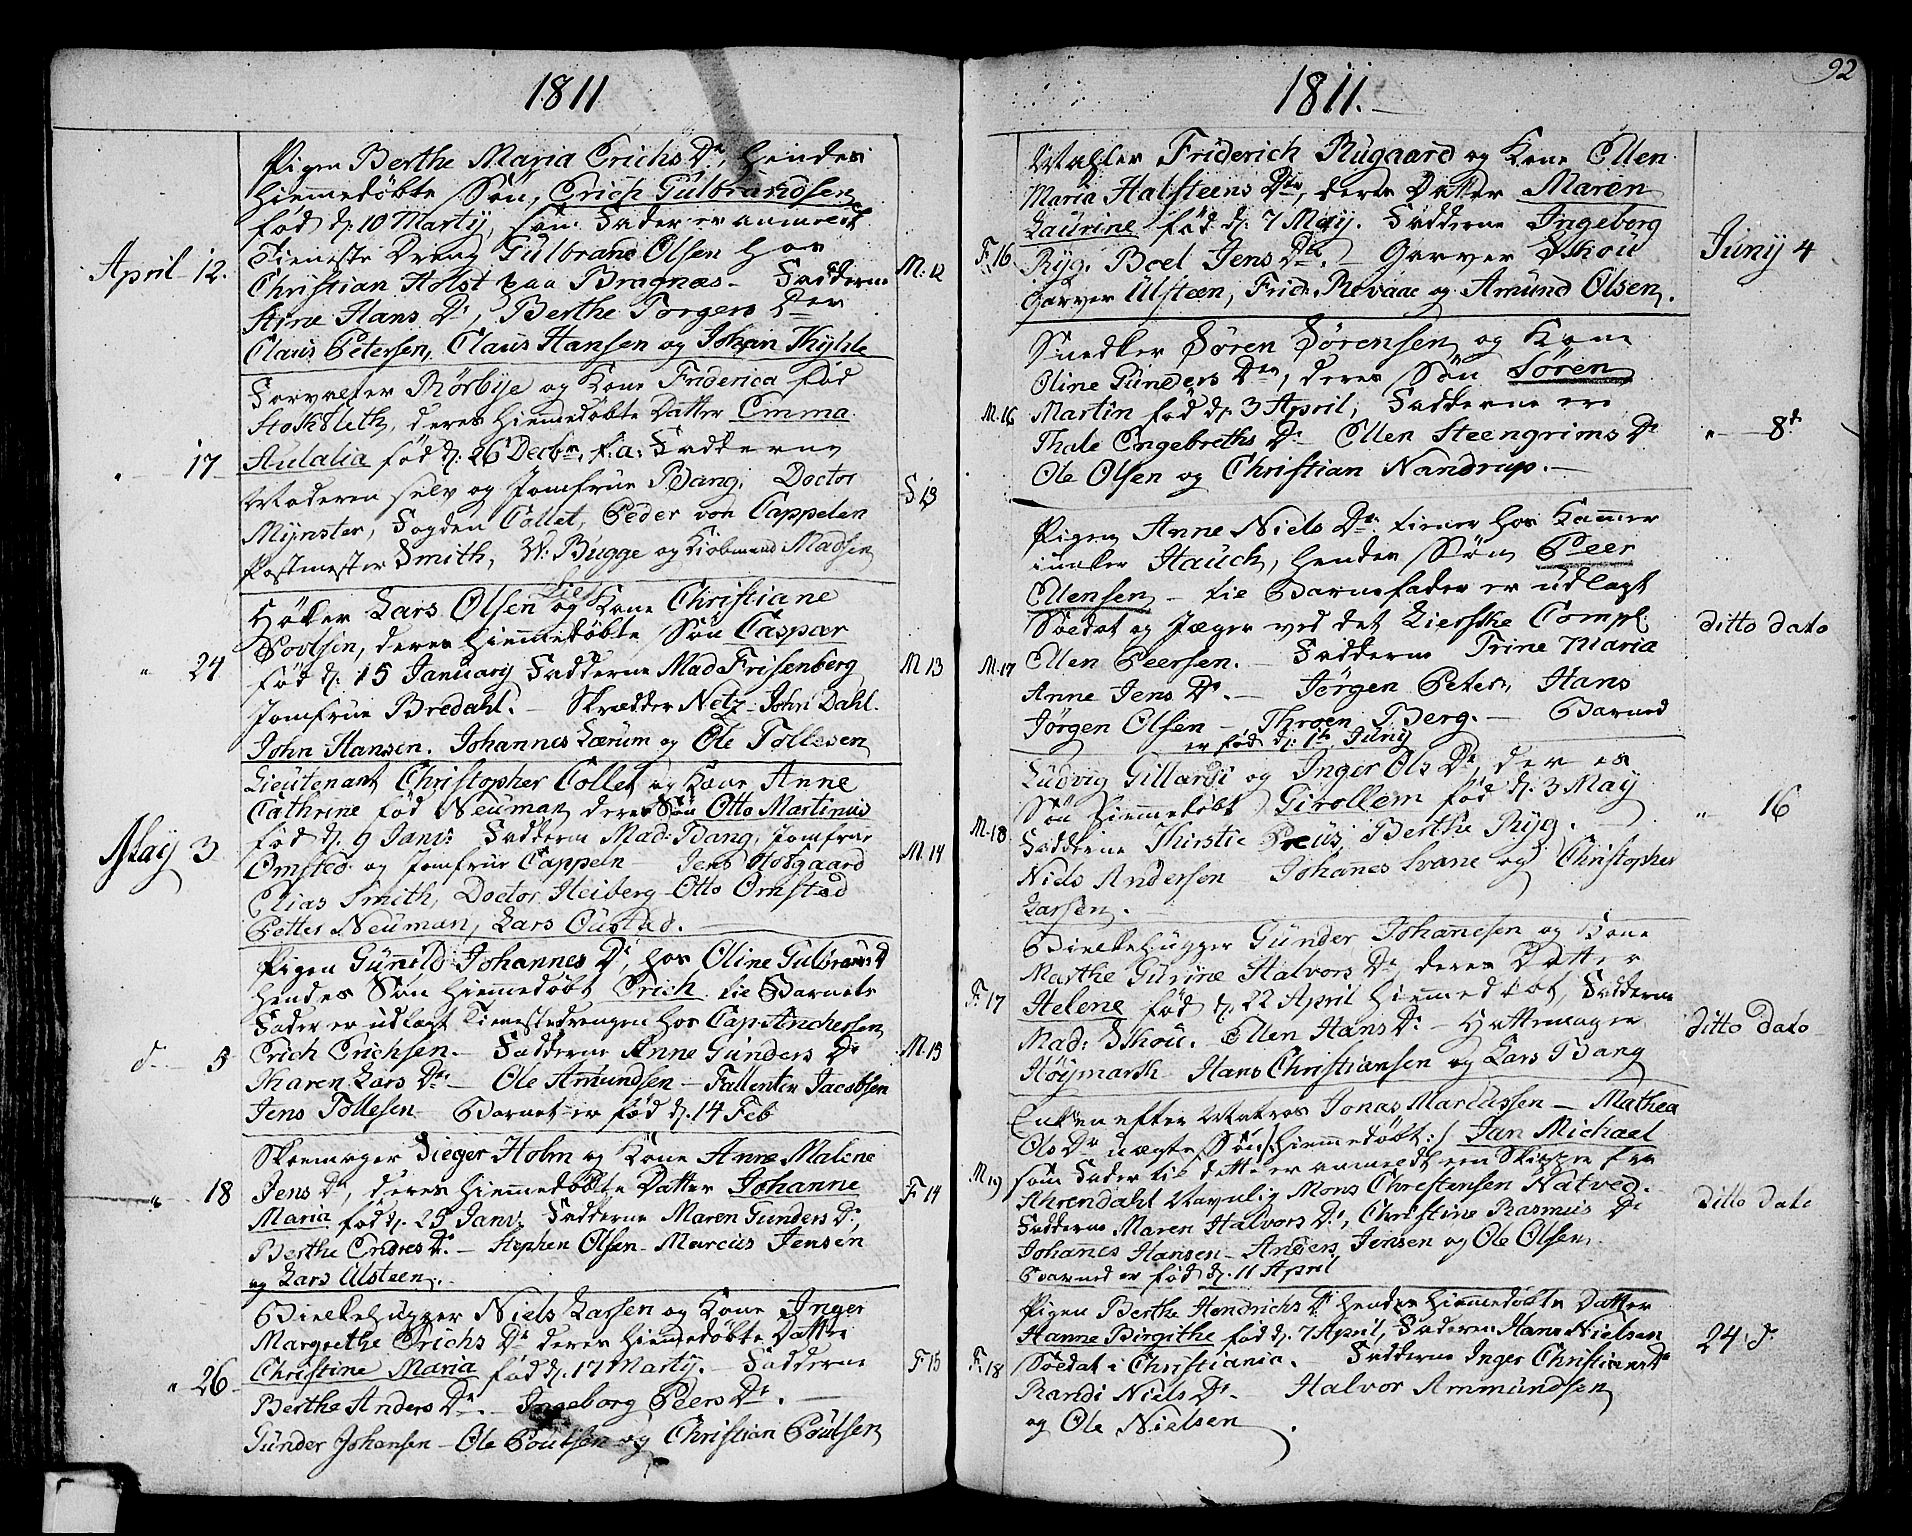 1811
April 12.
Pigen Berthe Maria Erichs Dr, hendes
hiemmedøbte Søn, Erich Gulbrandsen
fød d. 10 Martij, som Fader er anmeldt
Tieneste Dreng Gulbrand Olsen hos
Christian Holst paa Bragnæs - Fadderne
Stine Hans Dr, Berthe Torgers Der
Claus Petersen, Claus Hansen og Johan Thylde
M. 12
" 17
Forvalter Rørbye og Kone Friderica fød
Stockfleth, deres hiemmedøbte Datter Emma
Aulalia fød d. 26 Decbr. f. a: Fadderne
Moderen selv og Jomfrue Bang. Doctor
Mynster, Fogden Collet, Peder von Cappelen
Postmester Smith, N: Bugge og Kiøbmand Madsen
F 13
" 24
Høker Lars Olsen Lie og Kone Christiane
Povlsen, deres hiemmedøbte Søn Caspar
fød d. 15 January Fadderne Mad Frisenberg
Jomfrue Bredahl. - Skrædder Netz - John Dahl.
John Hansen. Johannes Lærum og Ole Tollesen
M 13
May 3
Lieutenant Christopher Collet og Kone Anne
Cathrine fød Neuman deres Søn Otto Martinus
fød d. 9 Janv: Fadderne Mad. Bang, Jomfrue
Omsted og Jomfrue Cappeln - Jens Hofgaard
Elias Smith, Doctor Heiberg - Otto Omstad
Petter Neuman, Lars Oustad.
M. 14
d - 5
Pigen Gunild Johannes Dr, hos Oline Gulbrands D
hendes Søn hiemmedøbt Erich til Barnets
Fader er udlagt Tienestedrengen hos Cap: Anchersen
Erich Erichsen. - Fadderne Anne Gunders Dr
Maren Lars Dr - Ole Amundsen - Fallentin Jacobsen
Jens Tollesen - Barnet er fød d. 14 Feb
M. 15
" 18
Skoemager Sieger Holm og Kone Anne Malene
Jens Dr, deres hiemmedøbte Datter Johanne
Maria fød d. 25 Janv. Fadderne Maren Gunders Dr,
Berthe Endres Dr. - Stephen Olsen - Marcus Jensen
og Lars Ulsteen.
F 14
" 26
Bielkehugger Niels Larsen og Kone Inger
Margrethe Erichs Dr deres hiemmedøbte Datter
Christine Maria fød d. 17 Martij. - Fadderne
Berthe Anders Dr. - Ingeborg Peers Dr. -
Gunder Johansen - Ole Poulsen og Christian Poulsen
F 15
1811.
92
F. 16
Mahler Friderich Rugaard og Kone Ellen
Maria Halsteens Dtr, deres Datter Maren
Laurine fød d. 7 May. Fadderne Ingeborg
Ryg. Boel Jens Dtr. - Garver Skou
Garver Ulsteen, Frid. Revaae og Amund Olsen.
Juny 4
M. 16
Snedker Søren Sørensen og Kone
Oline Gunders Der, deres Søn Søren
Martin fød d. 3 April, Fadderne ere
Thale Engebreths Dr Ellen Steengrims Dr
Ole Olsen og Christian Nandrup. -
" 8d
M. 17
Pigen Anne Niels Dr tiener hos Kammer
iunker Hauch, hendes Søn Peer
Ellensen - til Barnefader er udlagt
Soldat og Jæger ved det Lierske Comp:
Ellen Peersen. - Fadderne Trine Maria
Anne Jens Dr. - Jørgen Peter, Hans
Jørgen Olsen - Throen Berg. - Barned
er fød d. 1te Juny
ditto dato
M. 18
Ludvig Gillardi og Inger Ols Dr, deres
Søn hiemmedøbt Girollem fød d. 3 May
Fadderne Thirstie Preus, Berthe Ryg. -
Niels Andersen Johanes Svane og Christopher
Larsen. -
" 16
F. 17
Bielkehugger Gunder Johanesen og Kone
Marthe Gurine Halvors Dr, deres Datter
Helene fød d. 22 April hiemmedøbt, Fadderne
Mad: Skou. Ellen Hans Dr - Hattemager
Høymark - Hans Christiansen og Lars Bang
ditto dato
M 19
Enken efter Matros Jonas Marcussen - Mathea
Ols Dr uægte Søn /: hiemmedøbt :/ Jan Michael
som Fader til dette er anmeldt een Skipper fra
Ahrendahl navnlig Mons Christensen Natved.
Fadderne Maren Halvors Dr, Christine Rasmus Dr
Johannes Hansen - Anders Jensen og Ole Olsen.
Barned er fød d. 11 April
ditto dato
F. 18
Pigen Berthe Hendrichs Dr hendes hiemmedøbte Datter
Hanne Birgithe fød d. 7 April, Faderen Hans Nielsen
Soldat i Christiania. - Fadderne Inger Christians Dr
Randi Niels Dr - Halvor Ammundsen
og Ole Nielsen
24 d